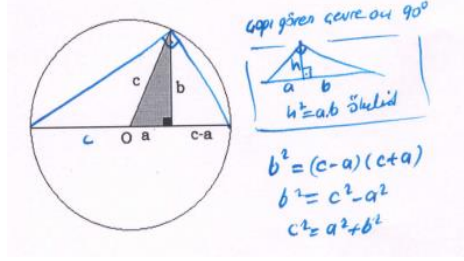 çapı gören çevre açı 90°
c
b
h
a b
h²=a.b öklid
c O a c-a
b²=(c-a)(c+a)
b²=c²-a²
c²=a²+b²